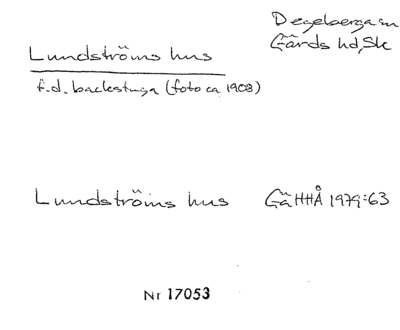 Degeberga sn
Gärds hd, Sk
Lundströms hus
f.d. backestuga (foto ca 1908)
Lundströms hus GäHHÅ 1979:63
Nr 17053